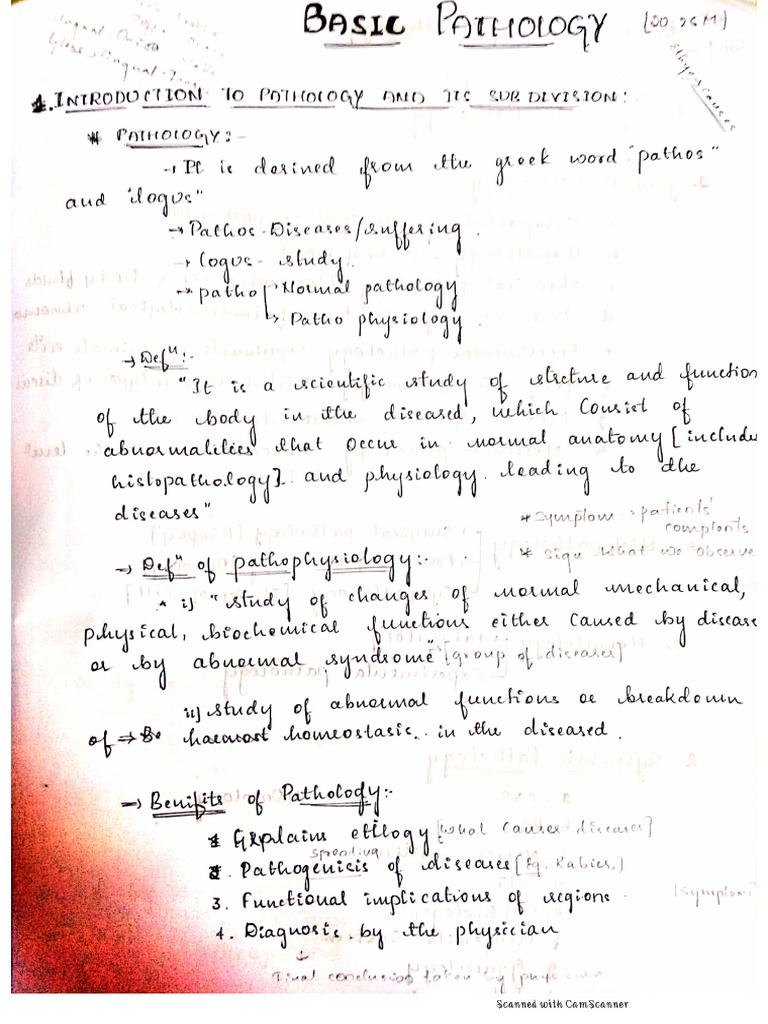 BASIC PATHOLOGY
1. INTRODUCTION TO PATHOLOGY AND ITS SUB DIVISION:
* PATHOLOGY:-
→ It is derined from the greek word "pathos"
and "logus"
→ Pathos-Diseases/suffering.
→ logus- study.
→ patho → Normal pathology
→ Patho physiology.
→ Defn:-
"It is a scientific study of strcture and function
of the body in the diseased, which consist of
abnormalities that occur in normal anatomy [include
histopathology] and physiology leading to the
diseases"
* symptom → patients'
complants
* sign what we observe
→ Defn of pathophysiology:-
* i) "study of changes of normal mechanical,
physical, biochemical functions either caused by disease
or by abnormal syndrome" [group of diseases]
ii) study of abnormal functions or breakdown
of → homeostasis in the diseased.
→ Benifits of Pathology:-
1. Explains etilogy [what causes diseases]
spreading
2. Pathogenisis of diseases [Eg. Rabies.]
3. Functional implications of regions. [symptom
4. Diagnosis by the physician
↓
Final conclusion taken by physician
Scanned with CamScanner